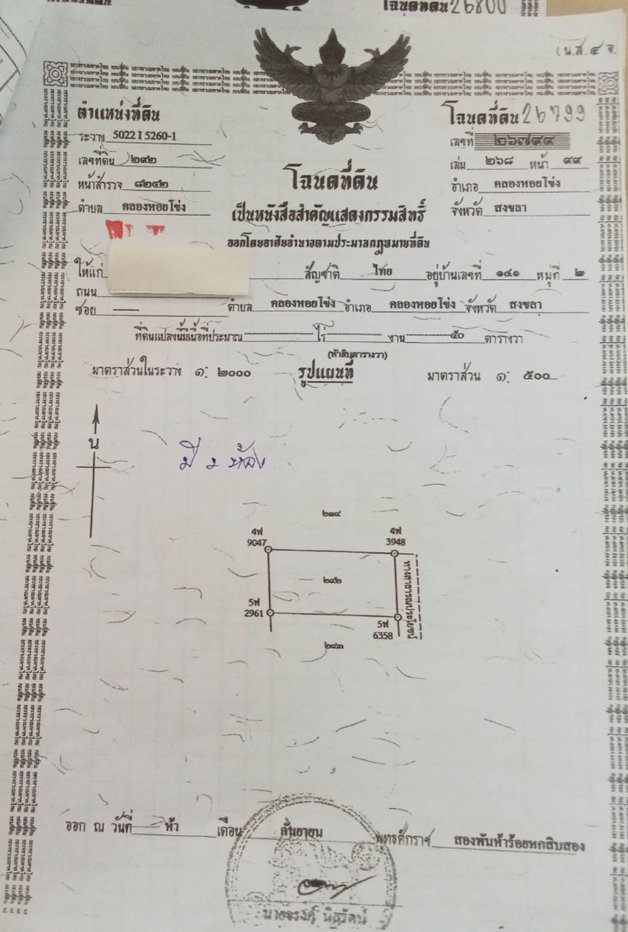 โฉนดที่ดิน 26800
(น.ส.๔ จ
ตำแหน่งที่ดิน
ระวาง 5022 I 5260-1
เลขที่ดิน ๒๙๒
หน้าสำรวจ ๘๒๔๒
ตำบล คลองหอยโข่ง
โฉนดที่ดิน 26799
เลขที่ ๒๖๗๙๙
เล่ม ๒๖๘ หน้า ๙๙
อำเภอ คลองหอยโข่ง
จังหวัด สงขลา
โฉนดที่ดิน
เป็นหนังสือสำคัญแสดงกรรมสิทธิ์
ออกโดยอาศัยอำนาจตามประมวลกฎหมายที่ดิน
ให้แก่ สัญชาติ ไทย อยู่บ้านเลขที่ ๑๔๑ หมู่ที่ ๒
ถนน
ซอย ตำบล คลองหอยโข่ง อำเภอ คลองหอยโข่ง จังหวัด สงขลา
ที่ดินแปลงนี้มีเนื้อที่ประมาณ ไร่ งาน ๕๐ ตารางวา
(ห้าสิบตารางวา)
มาตราส่วนในระวาง ๑: ๒๐๐๐ รูปแผนที่ มาตราส่วน ๑: ๕๐๐
น
มี ๒ ห้อง
4ฟ
9047
4ฟ
3948
๒๙๒
ทางสาธารณประโยชน์
5ฟ
2961
5ฟ
6358
๒๙๓
ออก ณ วันที่ ห้า เดือน กันยายน พุทธศักราช สองพันห้าร้อยหกสิบสอง